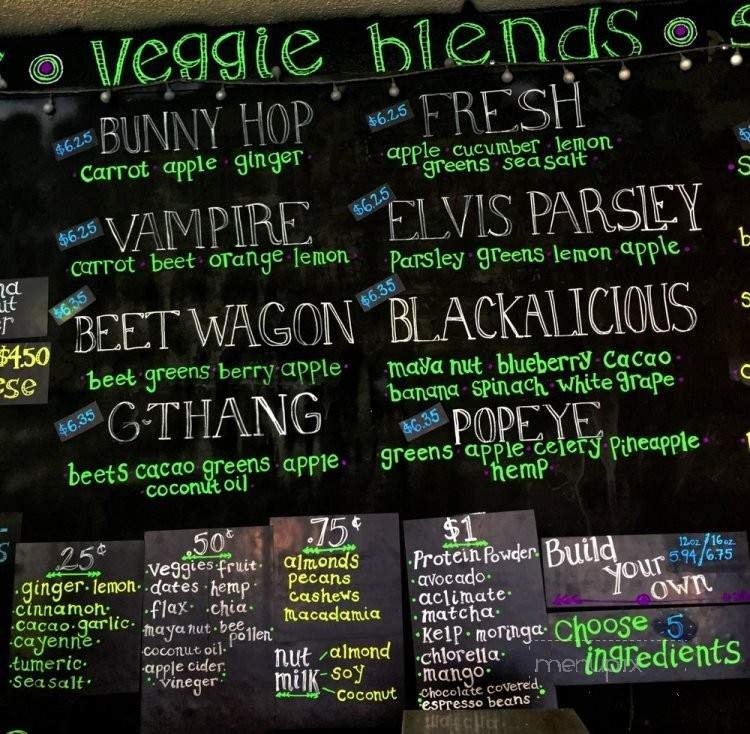 veggie blends
$6.25 BUNNY HOP
carrot · apple · ginger
$6.25 FRESH
apple · cucumber · lemon
greens · sea salt
$6.25 VAMPIRE
carrot · beet · orange · lemon
$6.25 ELVIS PARSLEY
Parsley · greens · lemon · apple
$6.35 BEET WAGON
beet · greens · berry · apple
$6.35 BLACKALICIOUS
maya nut · blueberry · cacao
banana · spinach · white grape
$6.35 G·THANG
beets · cacao · greens · apple
coconut oil
$6.35 POPEYE
greens · apple · celery · pineapple
hemp
$4.50
.25¢
ginger · lemon
cinnamon
cacao · garlic
cayenne
tumeric
sea salt
.50¢
veggies · fruit
dates · hemp
flax · chia
maya nut · bee pollen
coconut oil
apple cider
vineger
.75¢
almonds
pecans
cashews
macadamia
nut milk
almond
soy
coconut
$1
Protein Powder
avocado
aclimate
matcha
kelp · moringa
chlorella
mango
chocolate covered
espresso beans
Build your own
12oz / 16oz
5.94 / 6.75
Choose 5
ingredients
menupix